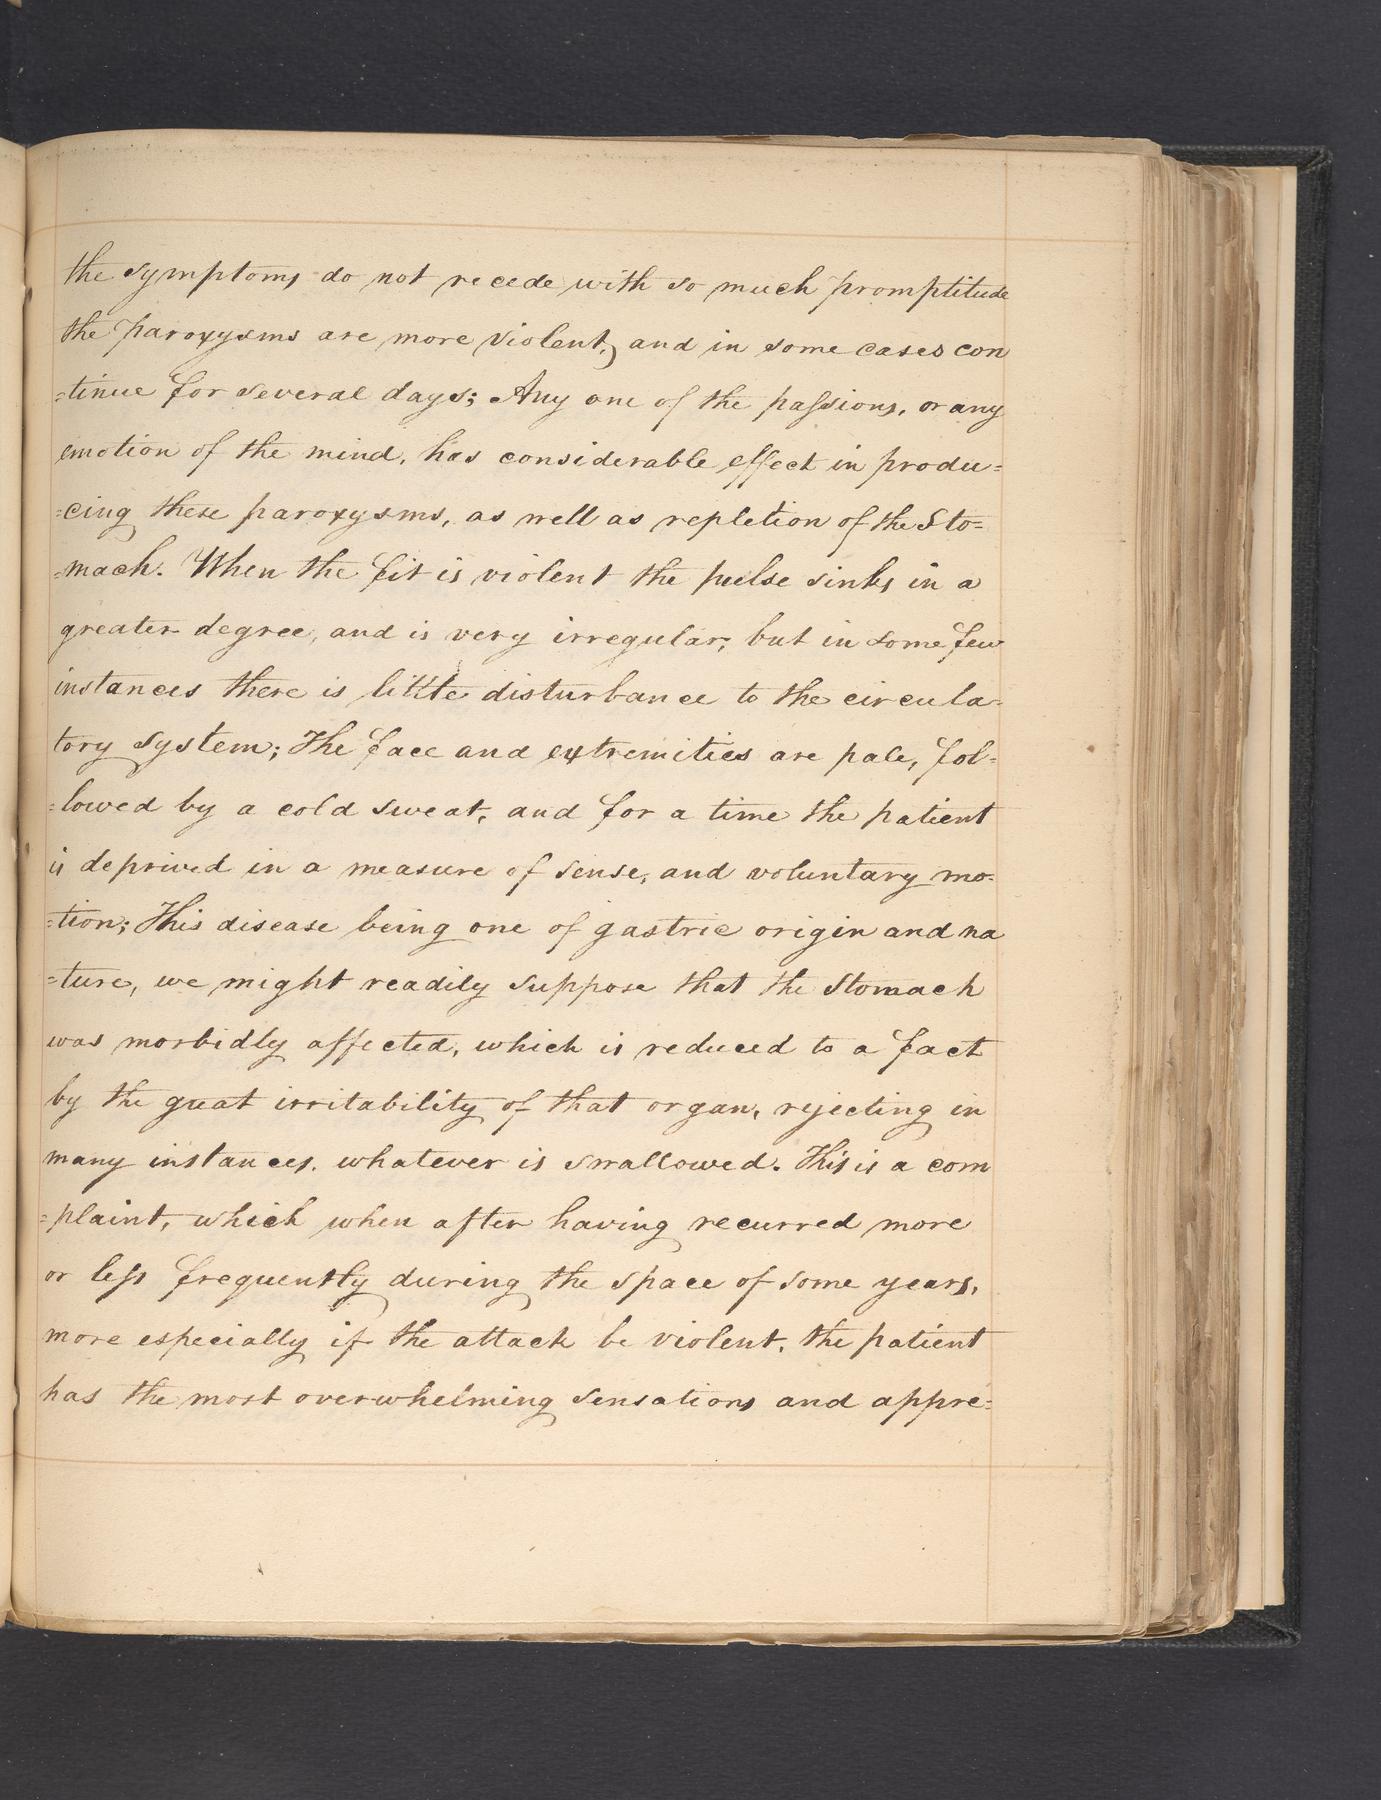 the symptoms do not recede with so much promptitude
the paroxysms are more violent, and in some cases con
=tinue for several days; Any one of the passions, or any
emotion of the mind, has considerable effect in produ=
=cing these paroxysms, as well as repletion of the Sto=
=mach. When the fit is violent the pulse sinks in a
greater degree, and is very irregular; but in some few
instances there is little disturbance to the circula-
tory system; The face and extremities are pale, fol=
=lowed by a cold sweat, and for a time the patient
is deprived in a measure of sense, and voluntary mo=
=tion; This disease being one of gastric origin and na
=ture, we might readily suppose that the stomach
was morbidly affected, which is reduced to a fact
by the great irritability of that organ, rejecting in
many instances, whatever is swallowed. This is a com
=plaint, which when after having recurred more
or less frequently during the space of some years,
more especially if the attack be violent, the patient
has the most overwhelming sensations and appre=